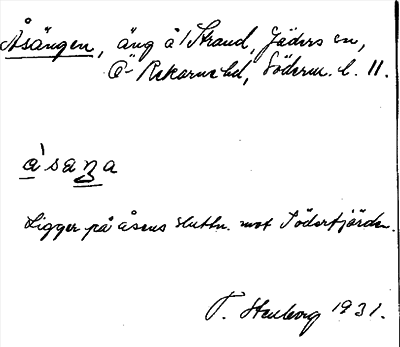 Åsängen, äng å Strand, Jäders sn,
Ö-Rekarne hd, Söderm. l. 11.
a'saŋa
Ligger på åsens sluttn. mot Söderfjärden.
T. Stenborg 1931.